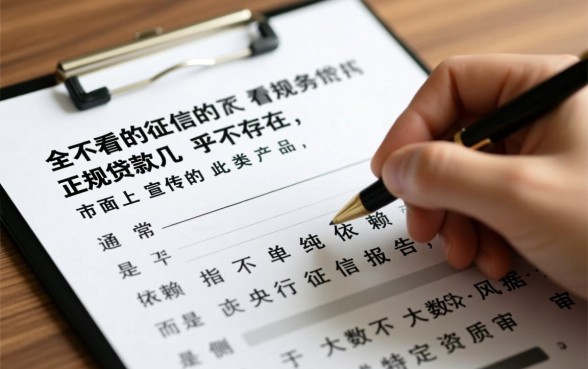 全不看的征信的 看规务
正规贷款几 乎不存在，
市面上 宣传的 此类产品，
通常
是 指不单纯依赖
依赖 央行征信报告，
而是 于大数不大数·风据
是侧 特定资质审 审